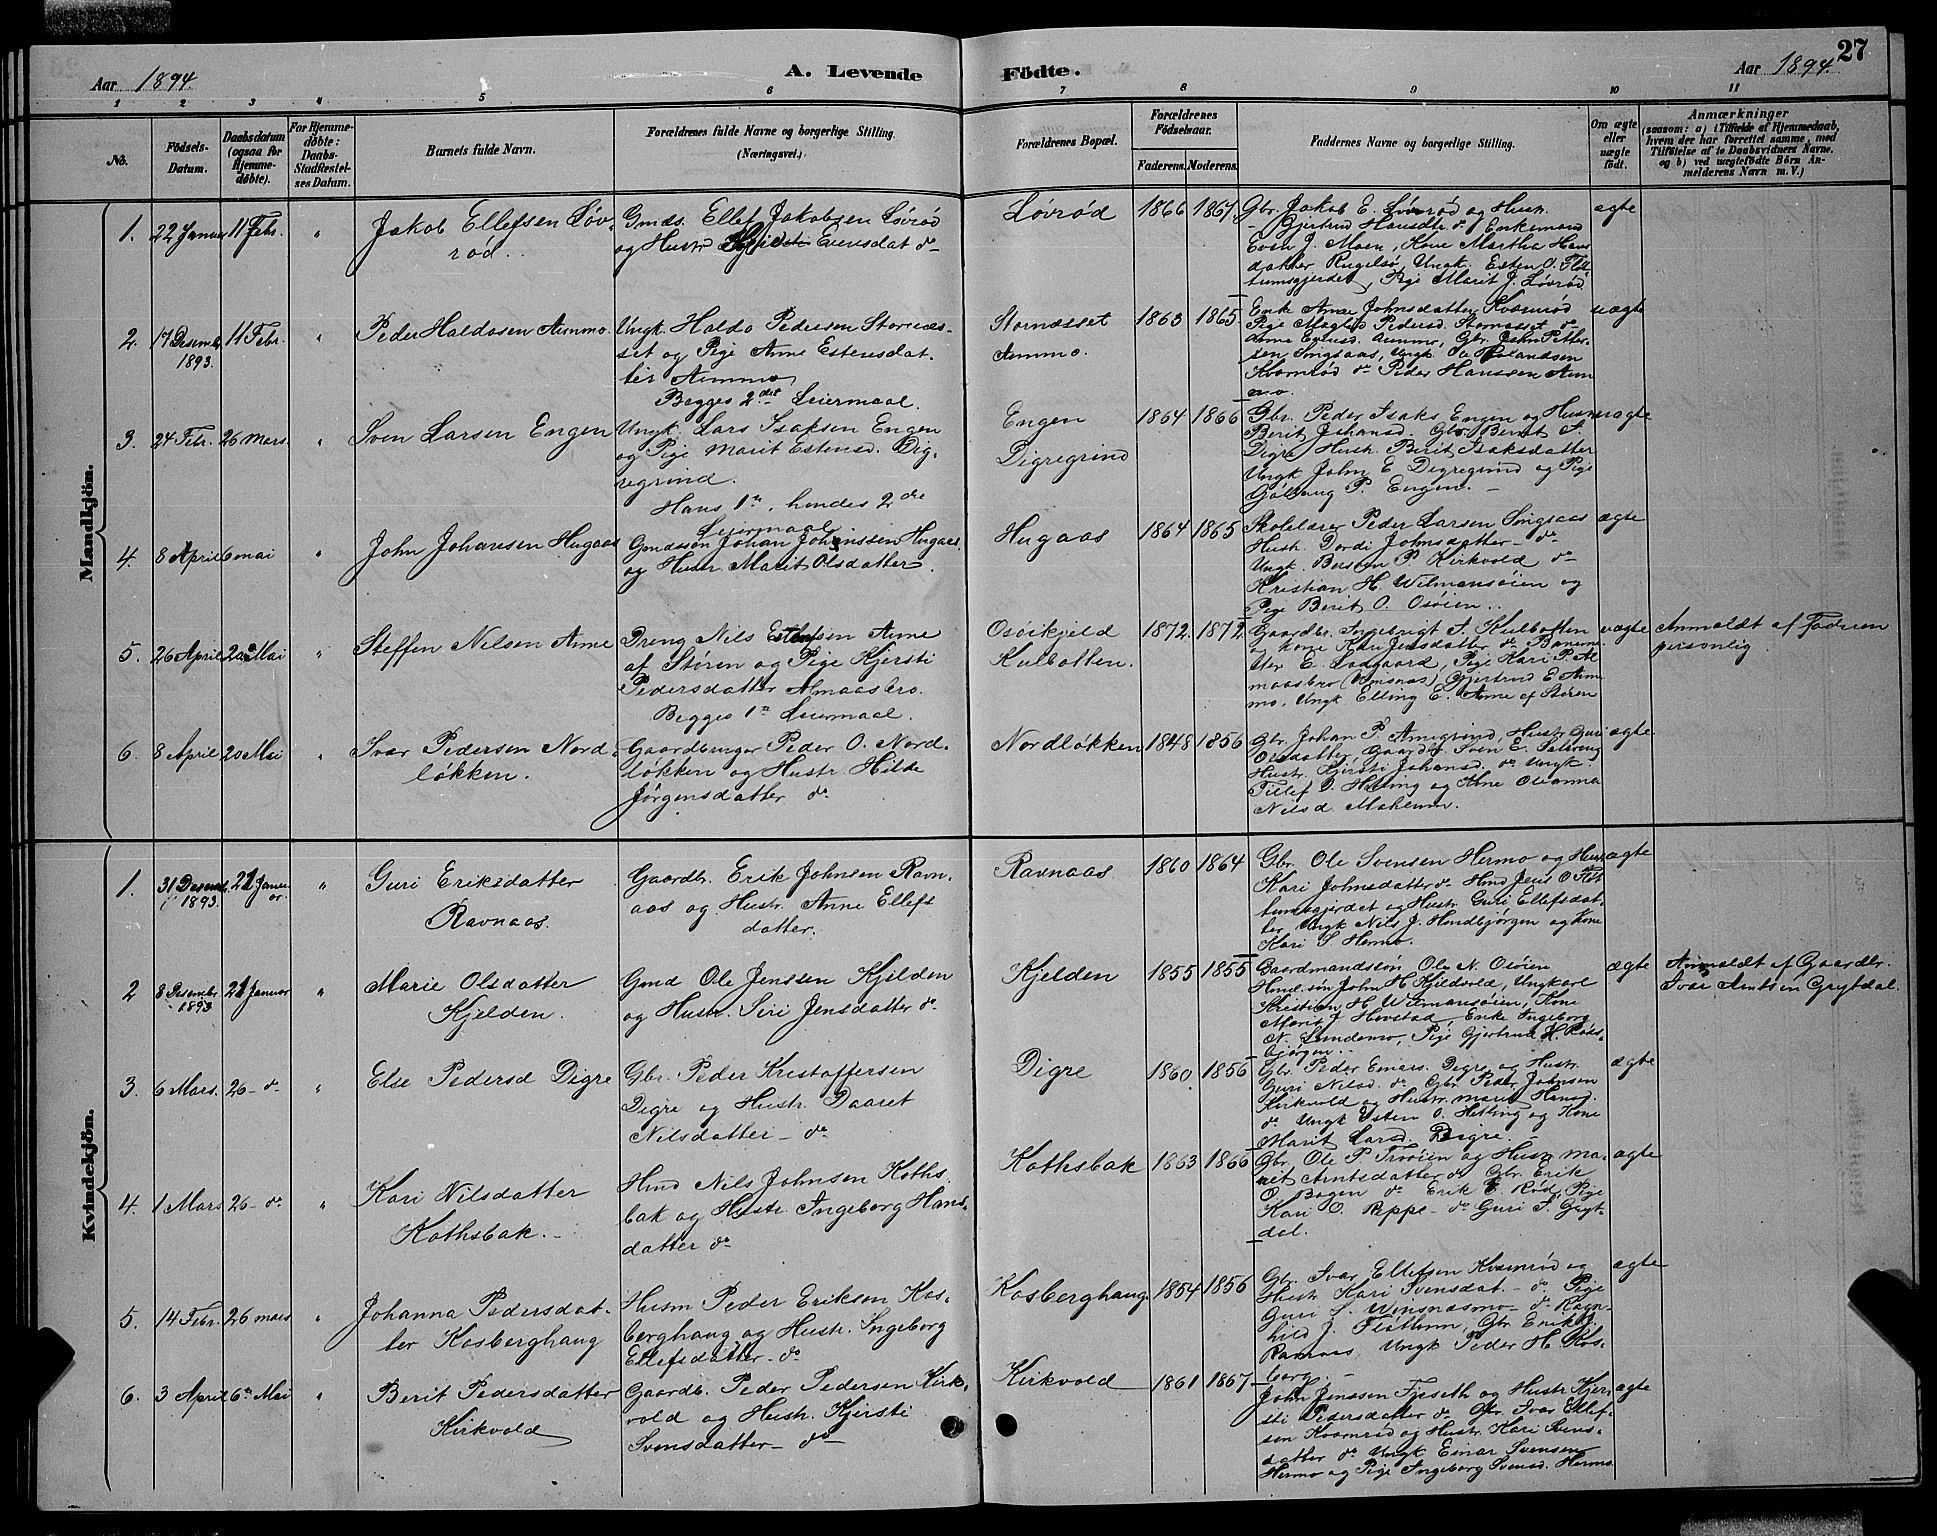 27
Aar 1894. A. Levende Fødte. Aar 1894.
1 2 3 4 5 6 7 8 9 10 11
No.
Fødsels-
Datum.
Daabsdatum
(ogsaa for
Hjemme-
døbte).
For Hjemme-
døbte:
Daabs-
Stadfæstel-
ses Datum.
Barnets fulde Navn.
Forældrenes fulde Navne og borgerlige Stilling.
(Næringsvei.)
Forældrenes Bopæl.
Forældrenes
Fødselsaar.
Faderens. Moderens.
Faddernes Navne og borgerlige Stilling.
Om ægte
eller
uægte
født.
Anmærkninger
(saasom: a) i Tilfælde af Hjemmedaab,
hvem der har forrettet samme, med
Tilføielse af to Daabsvidners Navne.
og b) ved uegtefødte Børn An-
melderens Navn m. V.)
Mandkjön.
1. 22 Januar 11 Febr. "
Jakob Ellefsen Løv-
rød.
Gmds. Ellef Jakobsen Løvrød
og Hustr Evensdat do
Løvrød 1866 1867.
Gbr. Jakob E. Løvrød og Hustr.
Gjertrud Hansdtr. do Enkemand
Even J. Moen, Kone Martha Hans
datter Rugelsø, Ungk. Esten O. Flot
tumsgjerdet, Pige Marit J. Løvrød
ægte
2. 17 Desembr 1893. 11 Febr. "
Peder Haldosen Aunmo.
Ungk. Haldo Pedersen Stornæs-
set og Pige Anne Estensdat-
ter Aunmo
Begges 2det Leiermaal.
Stornæsset
Aunmo.
1863 1865.
Enk Ane Johnsdatter Kvernrød
Pige Magted Pedersd. Stornæsset do
Anne Estensd. Aunmo, Gbr. John Petter-
sen Singsaas, Ungk
Kværnrød do Peder Hanssen Aun
mo.
uægte
3. 24 Febr. 26 Mars. "
Sven Larsen Engen
Ungk. Lars Isaksen Engen
og Pige Marit Estensd. Dig-
regrind.
Hans 1te, hendes 2det
Leiermaal.
Engen
Digregrind
1864 1866
Gbr. Peder Isaks Engen og Hustr
Berit Johansd. Gbr. Bernt S.
Digre Hustr. Berit Isaksdatter
Ungk John E Digregrind og Pige
Gølaug P. Engen.
uægte
4. 8 April 6 mai "
John Johansen Hugaas
Gmdssøn Johan Johnssen Hugaas.
og Hustr. Marit Olsdatter.
Hugaas 1864 1865
Skolelærer Peder Larsen Singsaas
Hustr. Dordi Johnsdatter do
Ungk. Bersven P. Kirkvold do
Kristian H. Wilmansøien og
Pige Berit O. Osøien.
ægte
5. 26 April 20 Mai "
Steffen Nilsen Aune
Dreng Nils Estensen Aune
af Støren og Pige Kjersti
Pedersdatter Almaasbro.
Begges 1te Leiermaal.
Osøikjeld
Kulbotten.
1872. 1872
Gaardbr. Ingebrigt J. Kulbotten
og Kone Kari Jensdatter do
E. Lodgaard, Pige Kari P. Al
maasbro (Almsnæs) Gjertrud E. Aun
mo, Ungk Elling E. Aune af Støren
uægte
Anmeldt af Faderen
personlig.
6. 8 April 20 Mai "
Ivar Pedersen Nord-
løkken.
Gaardbruger Peder O. Nord-
løkken og Hustr. Hilde
Jørgensdatter do
Nordløkken 1848 1856
Gbr. Johan P. Aunegrind, Hustr Guri
Olsdatter, Gaardbr. Sven E.
Hustr. Kjersti Johansd. do Ungk.
Tellef O. Hilling og Kone Oleanna
Nilsd. Mohlum.
ægte
Kvindekjön.
1. 31 Desembr 1893. 21 Januar "
Guri Eriksdatter
Ravnaas.
Gaardbr. Erik Johnsen Ravn-
aas og Hustr. Anne Ellefs
datter.
Ravnaas 1860 1864
Gbr. Ole Svensen Hermo og Hust
Kari Johnsdatter do Hmd Jens O Flot
tumsgjerdet og Hustr Guri Ellefsdat-
ter Ungk Nils J. Hindbjørgen og Kone
Kari S Hermo.
ægte
2 8 Desembr 1893 21 Januar "
Marie Olsdatter
Kjelden.
Gmd Ole Jenssen Kjelden
og Hustr. Siri Jensdatter do
Kjelden 1855 1855
Gaardmandssøn Ole N. Osøien
Hmd.søn John H Kjeldvold, Ungkarl
Kristian H. Wilmansøien, Kone
Marit J Hovstad, Enke Ingeborg
N. Lundemo, Pige Gjertrud H. Røds-
bjørgen.
ægte
Anmeldt af Gaardbr.
Ivar Arntsen Grytdal.
3. 6 Mars. 26 - do "
Else Pedersd Digre
Gbr. Peder Kristoffersen
Digre og Hustr. Daaret
Nilsdatter - do
Digre 1860 1856
Gbr. Peder Einers. Digre og Hustr.
Guri Nilsd. do Gbr. Peder Johnsen
Kirkvold og Hustr. Marit Hansd.
do Ungk Esten O. Hilling og Kone
Marit Larsd. Digre.
ægte
4. 1 Mars 26 - do "
Kari Nilsdatter
Kothsbak.
Hmd Nils Johnsen Koths-
bak og Hustr. Ingeborg Hans-
datter do
Kothsbak 1863 1866
Gbr. Ole P. Trøøien og Hustr Ma-
ret Arntsdatter do Gbr. Erik
O. Bogen do Erik E. Rød, Pige
Kari O. Reppe do Guri I. Gryt-
dal.
ægte
5. 14 Febr. 26 mars "
Johanna Pedersdat-
ter Kosberghaug
Husm Peder Eriksen Kos-
berghaug og Hustr. Ingeborg
Ellefsdatter - do
Kosberghaug 1854 1856
Gbr. Ivar Ellefsen Kvernrød og
Hustr Kari Svensdat. - do Pige
Guri S. Winsnæsmo do Ragn-
hild J. Fløttum, Gbr. Erik J.
Ravnaas, Ungk Peder H. Kos-
berg.
ægte
6. 3 April 6te Mai "
Berit Pedersdatter
Kirkvold
Gaardb. Peder Pedersen Kirk-
vold og Hustr. Kjersti
Svensdatter - do
Kirkvold 1861 1867
John Jenssen Fjeseth og Hustr Kjer-
sti Pedersdatter do Gbr. Ivar Ellef-
sen Kvarnrød og Hustr. Kari Svens-
datter do Ungk Einar Svensen
Hermo og Pige Ingeborg Svensd. Hermo
ægte